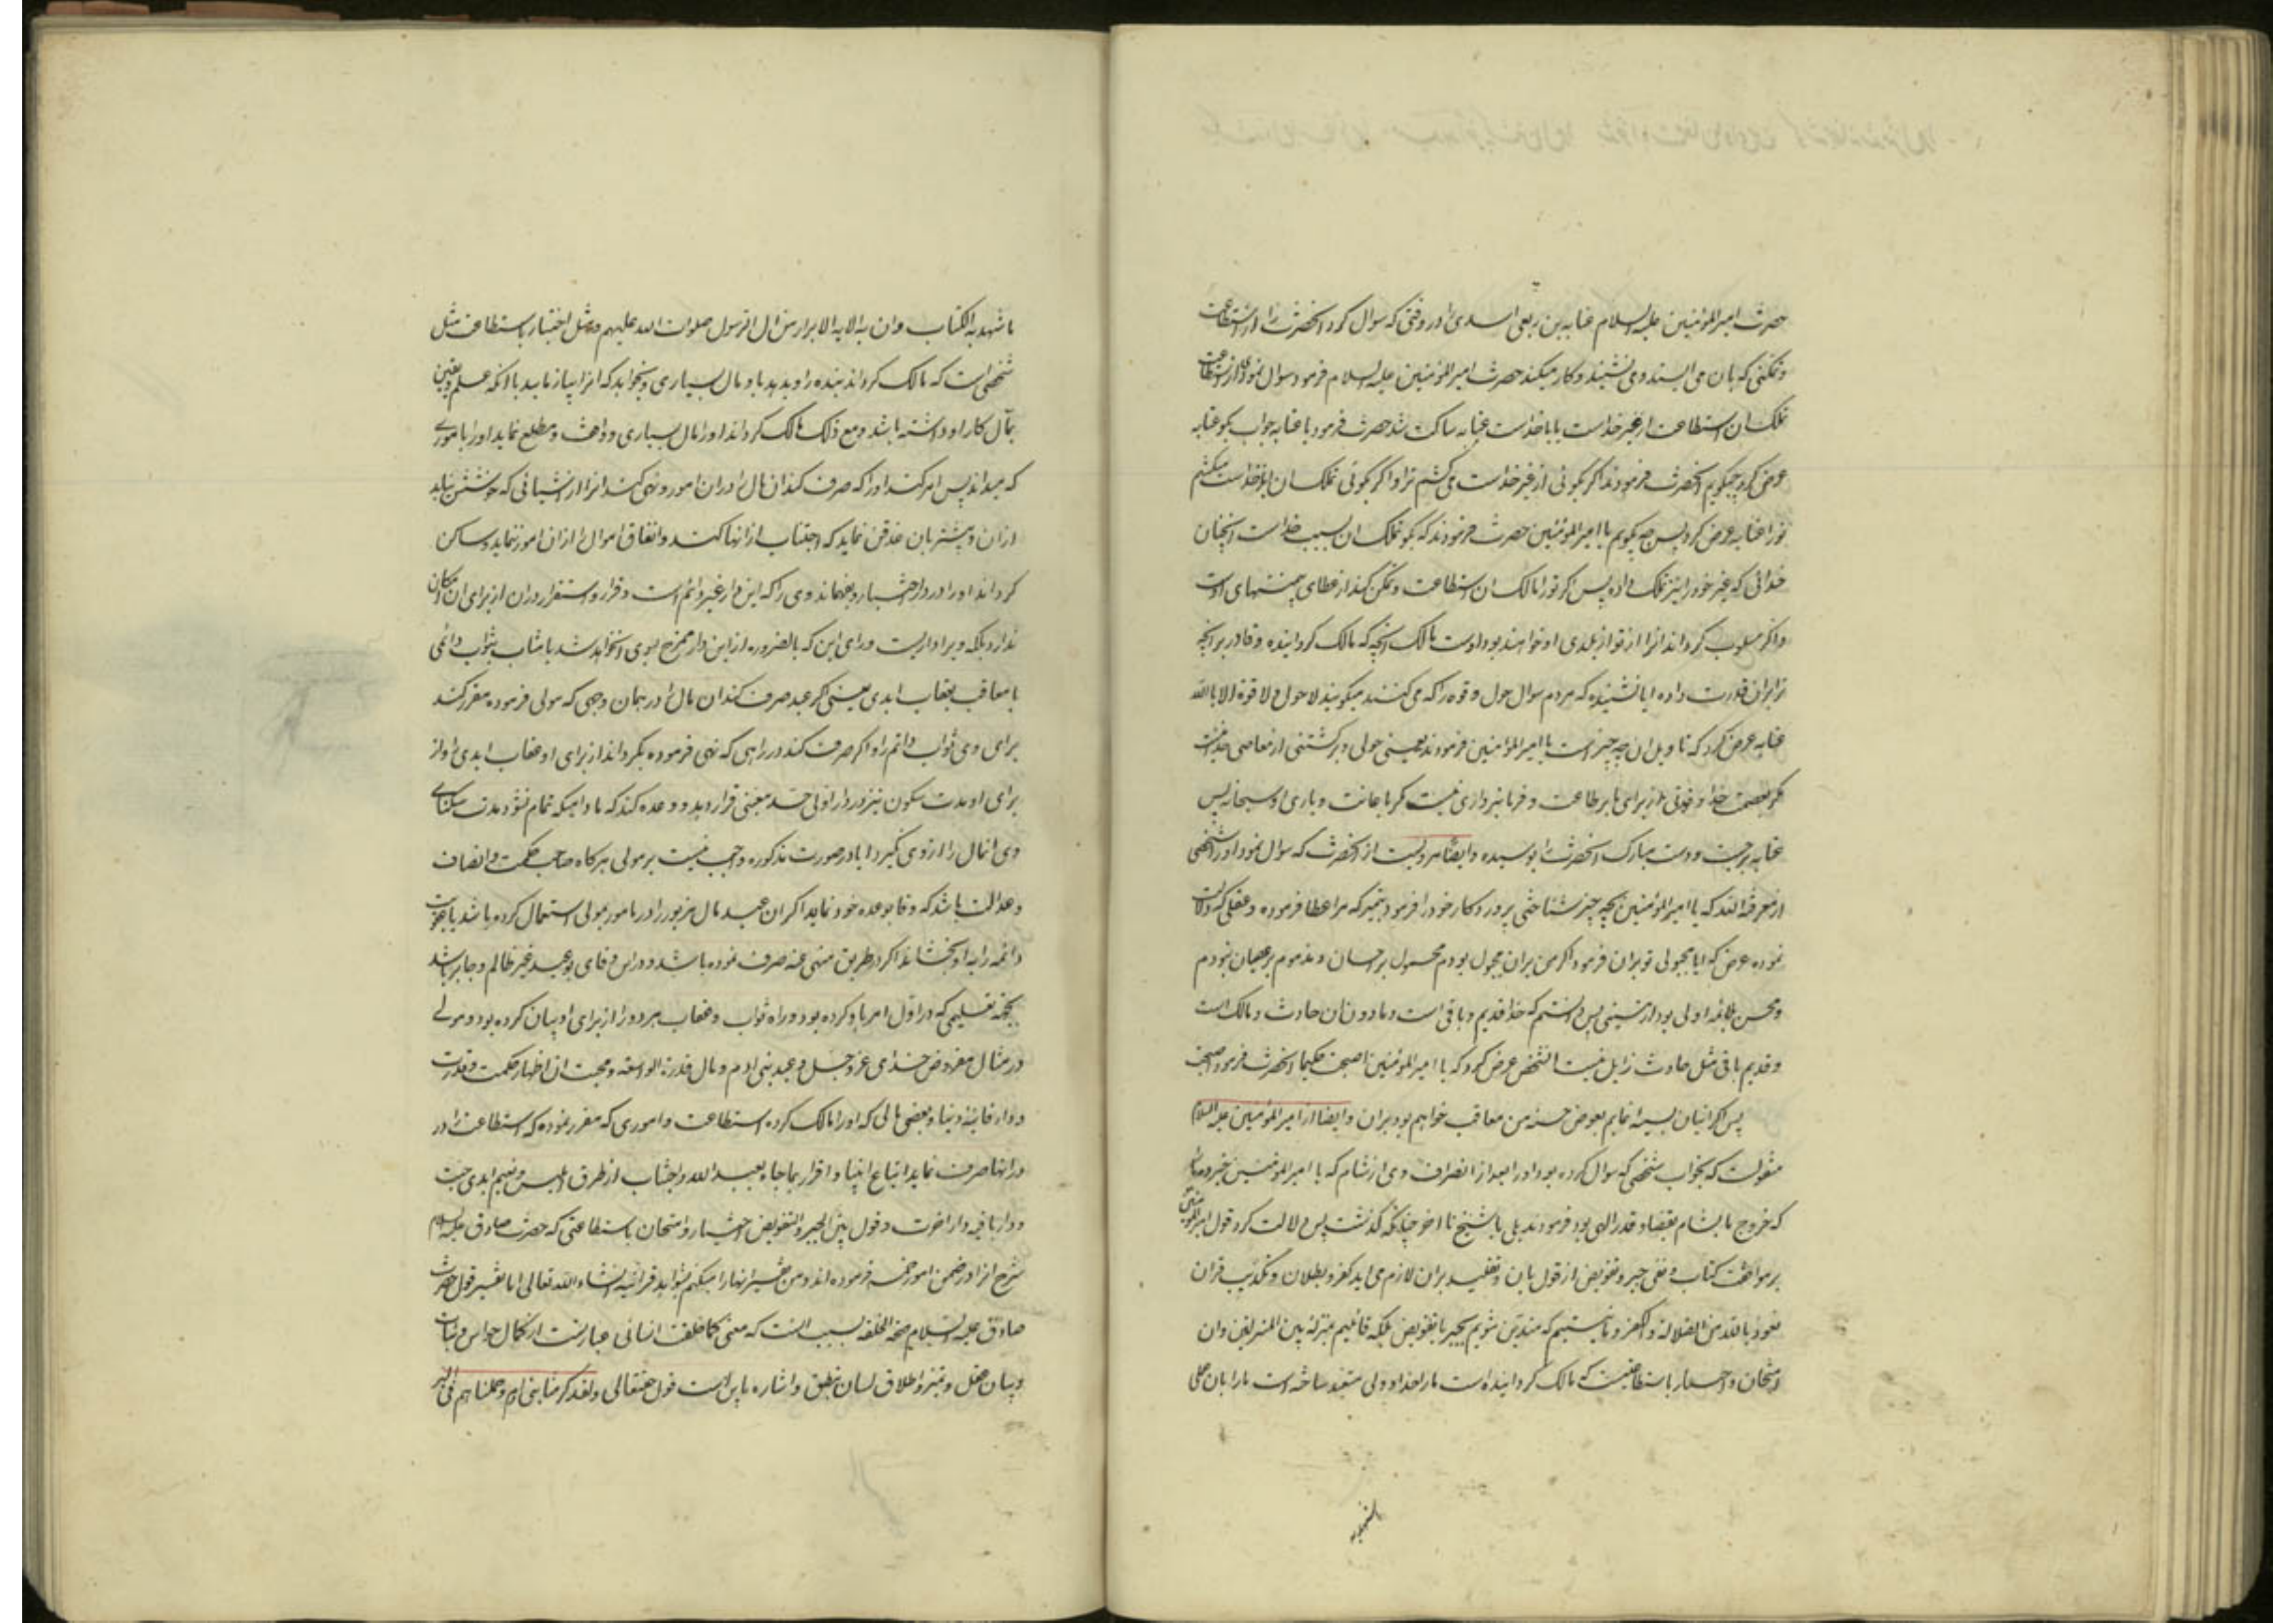 حضرت امیرالمؤمنین علیه السلام عبایه بن ربعی اسدی را در وقتی که سوال کرد انحضرت را از استطاعت
که بان می ایستد و می نشیند و کار میکند حضرت امیرالمؤمنین علیه السلام فرمود سوال نمودی از استطاعت
تملک ان استطاعت از غیر خداست یا با خداست عبایه ساکت شد حضرت فرمود یا عبایه جواب بکو عبایه
عرض کرد چه بکویم انحضرت فرمودند اکر بکوئی از غیر خداست می کشم ترا و اکر بکوئی تملک ان با خداست میکشم
تورا عبایه عرض کرد پس چه بکویم یا امیرالمؤمنین حضرت فرمودند که بکو تملک ان بسبب خداست انچنان
خدائی که غیر خود را نیز تملک داده پس اکر تورا مالک ان استطاعت و تمکن کند از عطای او است
و اکر مسلوب کرداند انرا از تو از بلای او خواهند بود و اوست مالک انچه که مالک کردانیده و قادر بر انچه
ترا بران قدرت داده ایا نشنیده که مردم سوال حول و قوه را که می کنند میکویند لا حول و لا قوة الا بالله
عبایه عرض کرد که تاویل ان چه چیز است یا امیرالمؤمنین فرمودند یعنی حولی و برکشتنی از معاصی خدا نیست
مکر بعصمت خدا و قوتی از برای ما بر طاعت و فرمانبرداری نیست مکر باعانت و یاری او سبحانه پس
عبایه برجست و دست مبارک انحضرت را بوسیده و ایضا مرویست از انحضرت که سوال نمود او را شخصی
از معرفة الله که یا امیرالمؤمنین بچه چیز شناختی پروردکار خود را فرمود بتمیز که مرا عطا فرموده و عقلی که دلالت
نموده عرض که ایا مجبولی تو بران فرمود اکر من بران مجبول بودم محمول بر احسان و مذموم بر عصیان نبودم
و محسن بلائمه اولی بود از مسیئی پس دانستم که خدا قدیم و باقی است و مادون ان حادث و هالک است
و قدیم باقی مثل حادث زایل نیست انشخص عرض کرد که یا امیرالمؤمنین اصبحت حکیما انحضرت فرمود اصبحت
پس اکر اتیان بسیئه نمایم بعوض حسنه من معاقب خواهم بود بران و ایضا از امیرالمؤمنین علیه السلام
منقولست که بجواب شخصی که سوال کرده بود او را بعد از انصراف وی از شام که یا امیرالمؤمنین خبر ده ما را
که خروج ما بشام بقضا و قدر الهی بود فرمودند بلی یا شیخ تا اخر چنانکه کذشت پس دلالت کرد قول امیرالمؤمنین
بر موافقت کتاب و نفی جبر و تفویض از قول بان و تقلید بران لازم می اید کفر و بطلان و تکذیب قران
نعوذ بالله من الضلالة و الکفر و نیستیم که متدین شویم بجبر یا تفویض بلکه قائلیم بمنزلة بین المنزلتین وان
امتحان و اختبار باستطاعتیست که مالک کردانیده است ما را خدا و ولی متعبد ساخته است ما را بان علی
ما شهد به الکتاب و ان به الایه الابرار من ال الرسول صلوات الله علیهم و مثل اختبار باستطاعت مثل
شخصی است که مالک کرداند بنده را و بدهد باو مال بسیاری و بخواهد که انرا بیازماید با انکه علم و یقین
بمآل کار او داشته باشد و مع ذلک مالک کرداند او را مال بسیاری و واقف و مطلع نماید او را بامورے
که میداند پس امر کند او را که صرف کند ان مال را دران امور و نهی کند انرا از اشیائی که خوشش نیاید
ازان و بیشتر بان قدغن نماید که اجتناب از انها کند و انفاق اموال را ازان امور ننماید و ساکن
کرداند او را در دار اختبار و بفهماند وی را که این دار غیر دائم است و قرار و استقرار دران از برای ان مکان
ندارد بلکه ویرا داریست ورای این که بالضروره ازاین دار مخرج بسوی ان خواهد شد یا مثاب بثواب دائمی
یا معاقب بعقاب ابدی یعنی اکر عبد صرف کند ان مال را در همان وجهی که مولی فرموده مقرر کند
برای وی ثواب دائم را و اکر صرف کند در راهی که نهی فرموده بکرداند از برای او عقاب ابدی را و از
برای او مدت سکون نیز در دار اولی حد معینی قرار دهد و وعده کند که مادامیکه تمام نشود مدت سکنای
وی انمال را از وی نکیرد ایا در صورت مذکوره واجب نیست بر مولی هر کاه صاحب حکمت و انصاف
و عدالت باشد که وفا بوعده خود نماید اکر ان عبد مال مزبور را در مامور مولی استعمال کرده باشد یا عقوبت
دائمه را به او بچشاند اکر در طریق منهی عنه صرف نموده باشد و دراین وفای بوعید غیر ظالم و جابر باشد
بجهة تعلیمی که در اول امر باو کرده بود و راه ثواب و عقاب هر دو را از برای او بیان کرده بود و مولی
در مثال مفروض خدای عز و جل و عبد بنی ادم و مال قدرة الواسعه و محبت ان اظهار حکمت و قدرت
و دار فانیه دنیا و بعضی مالی که او را مالک کرده استطاعت و اموری که مقرر نموده که استطاعت را در
در انها صرف نماید اتباع انبیا و اقرار بما جاء به عبد الله و اجتناب از طرق ابلیس و نعیم ابدی جنت
و دار باقیه دار اخرت و قول بین الجبر و التفویض اختبار و امتحان باستطاعتی که حضرت صادق علیه السلام
شرح انرا در ضمن امور خمسه فرموده اند و من تفسیر انها را میکنم بشواهد قرانیه انشاء الله تعالی اما تفسیر قول حضرت
صادق علیه السلام صحة الخلقة بسبب انست که معنی کمال خلقت انسانی عبارتست از کمال حواس و ثبات
و بیان عقل و تمیز و اطلاق لسان بنطق و اشاره باین است قول حقتعالی ولقد کرمنا بنی ادم و حملناهم فی البر